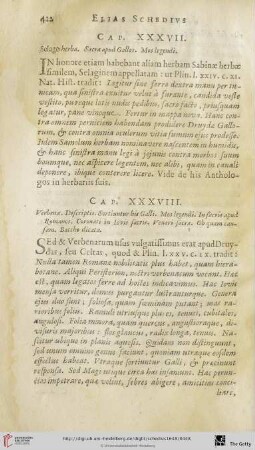 422 ELIAS SCHEDIUS
CAP. XXXVII.
Selago herba. Sacra apud Gallos. Mos legendi.
IN honore etiam habebant aliam herbam Sabinæ herbæ
similem, Selaginem appellatam
Nat. Hist. tradit: Legitur sine ferro dextra manu per tu-
nicam, qua sinistra exuitur velut à furante, candida veste
vestito, pureque lotis nudis pedibus, sacro facto, priusquam
legatur, pane vinoque. Fertur in mappa nova. Hanc con-
tra omnem perniciem habendam prodidere Druydæ Gallo-
rum, & contra omnia oculorum vitia fumum ejus prodesse.
Iidem Samolum herbam nominavere nascentem in humidis,
& hanc sinistra manu legi à jejunis contra morbos suum
boumque, nec respicere legentem, nec alibi, quam in canali
deponere, ibique conterere Vide de his Antholo-
gos in herbariis suis.
CAP. XXXVIII.
Verbena. Descriptio. Sortiuntur his Galli. Mos legendi. In sacris apud
Romanos. Veneri sacra. Ob quam cau-
sam. Baccho dicata.
SEd & Verbenarum usus vulgatissimus erat apud Druy-
das, seu Celtas, quod & Plin. l. XXV. c. IX. tradit:
Nulla tamen Romanæ nobilitatis plus habet, quam hiera-
botane. Aliqui Peristereon, nostri verbenacam vocant. Hæc
est, quam legatos ferre ad hostes indicavimus. Hac Iovis
mensa verritur, domus purgantur lustranturque. Genera
ejus duo sunt; foliosa, quam fœminam putant; mas ra-
rioribus foliis. Ramuli utriusque plures, tenues, cubitales,
angulosi. Folia minora, quam quercus, angustioraque, di-
visuris majoribus: flos glaucus, radix longa, tenuis. Na-
scitur ubique in planis aquosis. Quidam non distinguunt,
sed unum omnino genus faciunt, quoniam utraque eosdem
effectus habeat. Utraque sortiuntur Galli, & præcinunt
responsa. Sed Magi utique circa hanc insaniunt. Hac perun-
ctos impetrare, quæ velint, febres abigere, amicitias conci-
liare,
http://digi.ub.uni-heidelberg.de/diglit/schedius1648/
The Getty